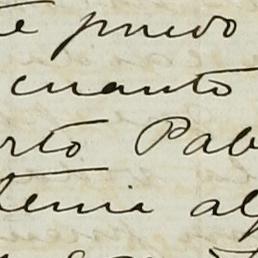 te puedo
cuanto
rto Pab
tenia al